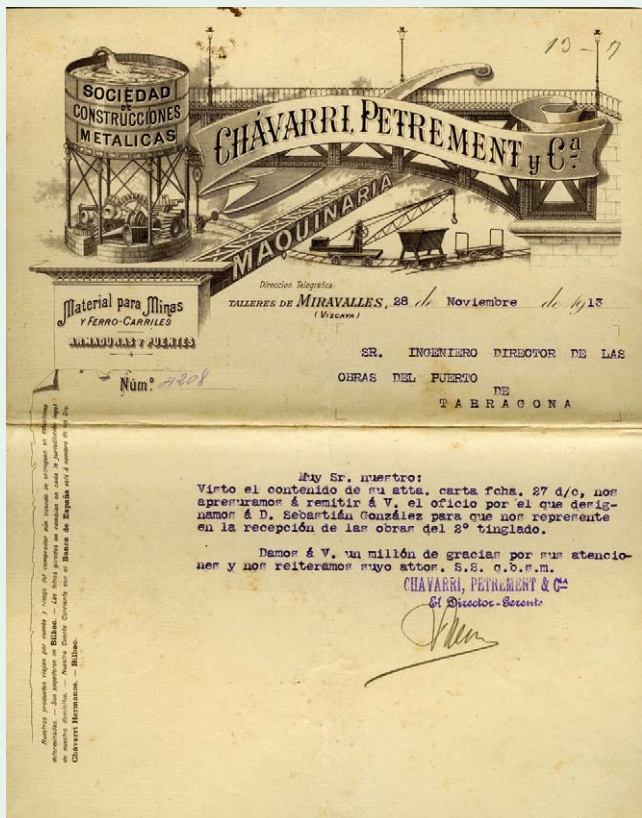 13-7
SOCIEDAD
DE
CONSTRUCCIONES
METALICAS
CHÁVARRI, PETREMENT y Cª
MAQUINARIA
Material para Minas
Y FERRO-CARRILES
ARMADURAS Y PUENTES
Núm.º 4208
Direccion Telegráfica:
TALLERES DE MIRAVALLES, 28 de Noviembre de 1913
(VIZCAYA)
SR. INGENIERO DIRECTOR DE LAS
OBRAS DEL PUERTO
DE
TARRAGONA
Muy Sr. nuestro:
Visto el contenido de su atta. carta fcha. 27 d/c, nos
apresuramos á remitir á V. el oficio por el que desig-
namos á D. Sebastián González para que nos represente
en la recepción de las obras del 2º tinglado.
Damos á V. un millón de gracias por sus atencio-
nes y nos reiteramos suyo attos. S.S. q.b.s.m.
CHAVARRI, PETREMENT & Cª
El Director-Gerente
Nuestros productos viajan por cuenta y riesgo del comprador aún cuando se entreguen en estaciones
determinadas. — Son pagaderos en Bilbao. — Los giros no cambian en nada la jurisdicción legal
de nuestro domicilio. — Nuestra Cuenta Corriente con el Banco de España está á nombre de los Sres.
Chávarri Hermanos. — Bilbao.